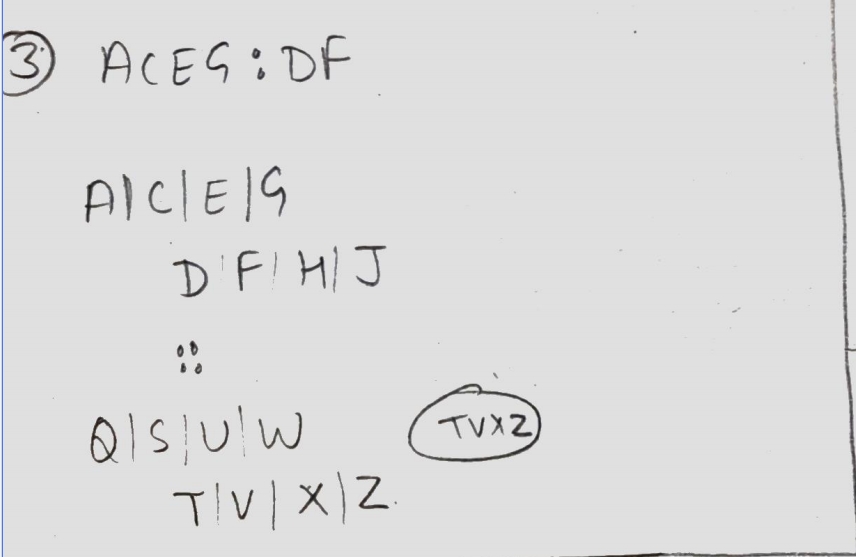 ③ ACEG : DF
A|C|E|G
D|F|H|J
::
Q|S|U|W
TVXZ
T|V|X|Z.